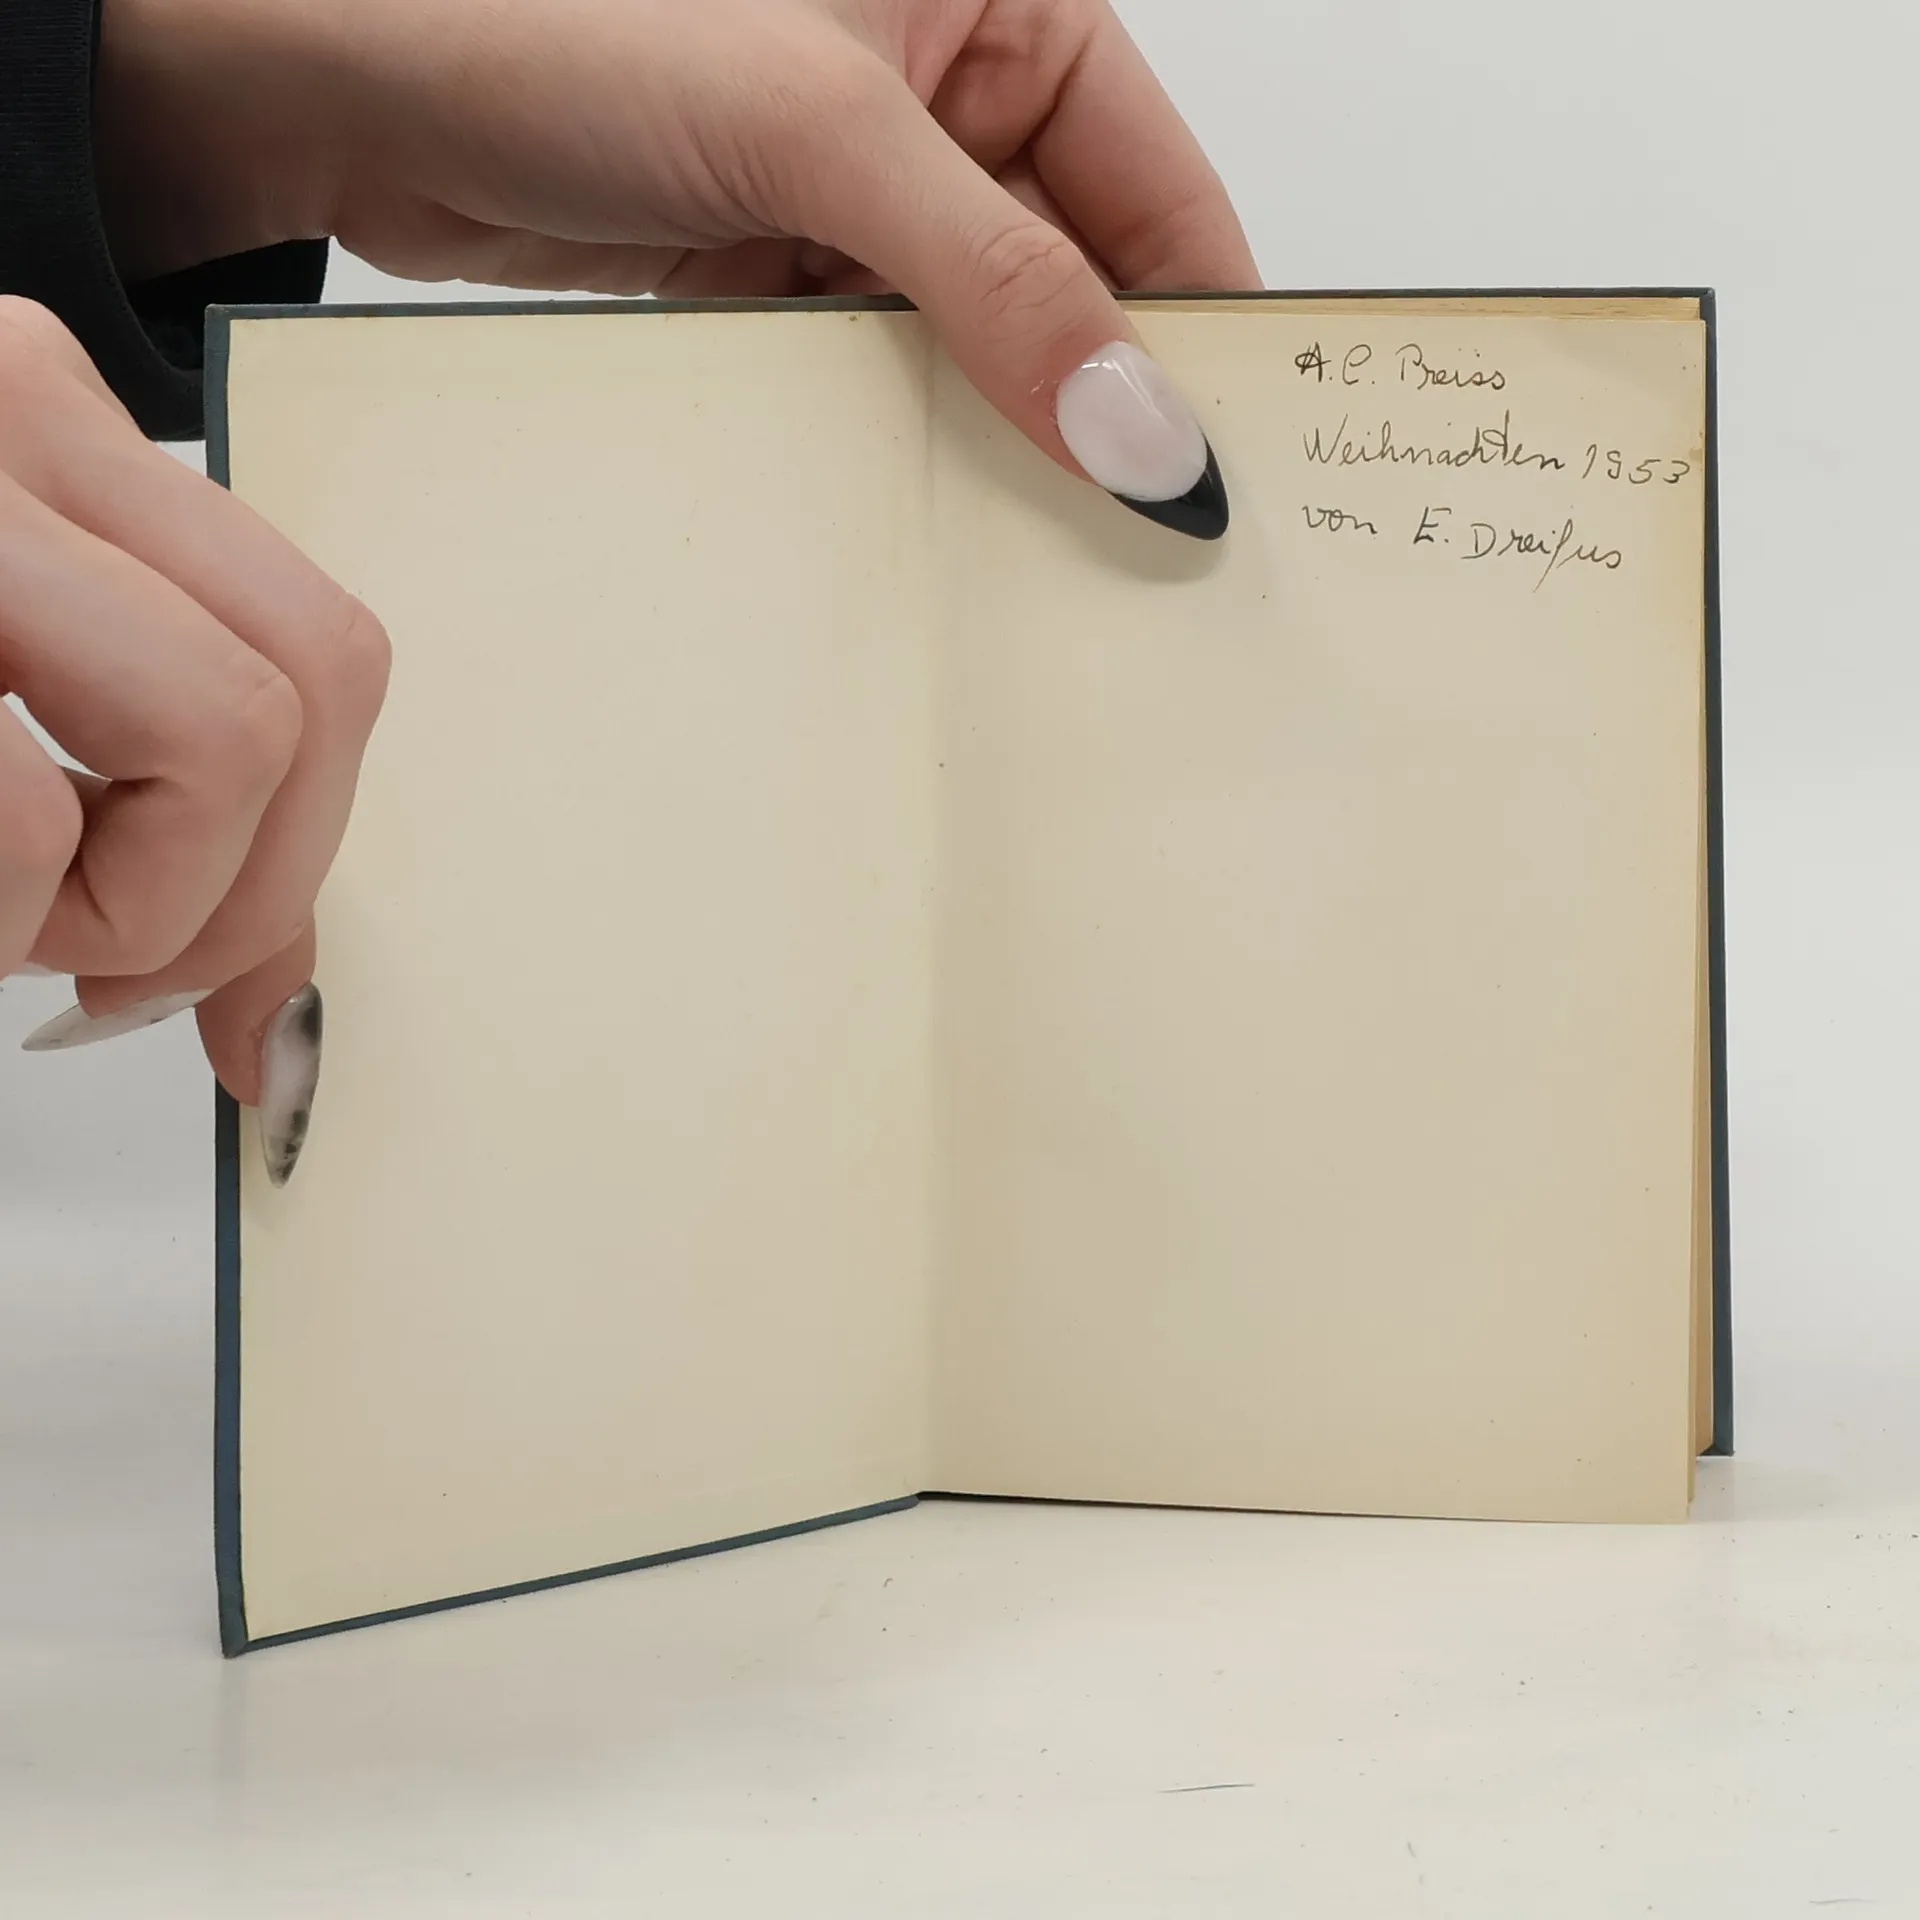 A. C. Preiss
Weihnachten 1953
von E. Dreifus